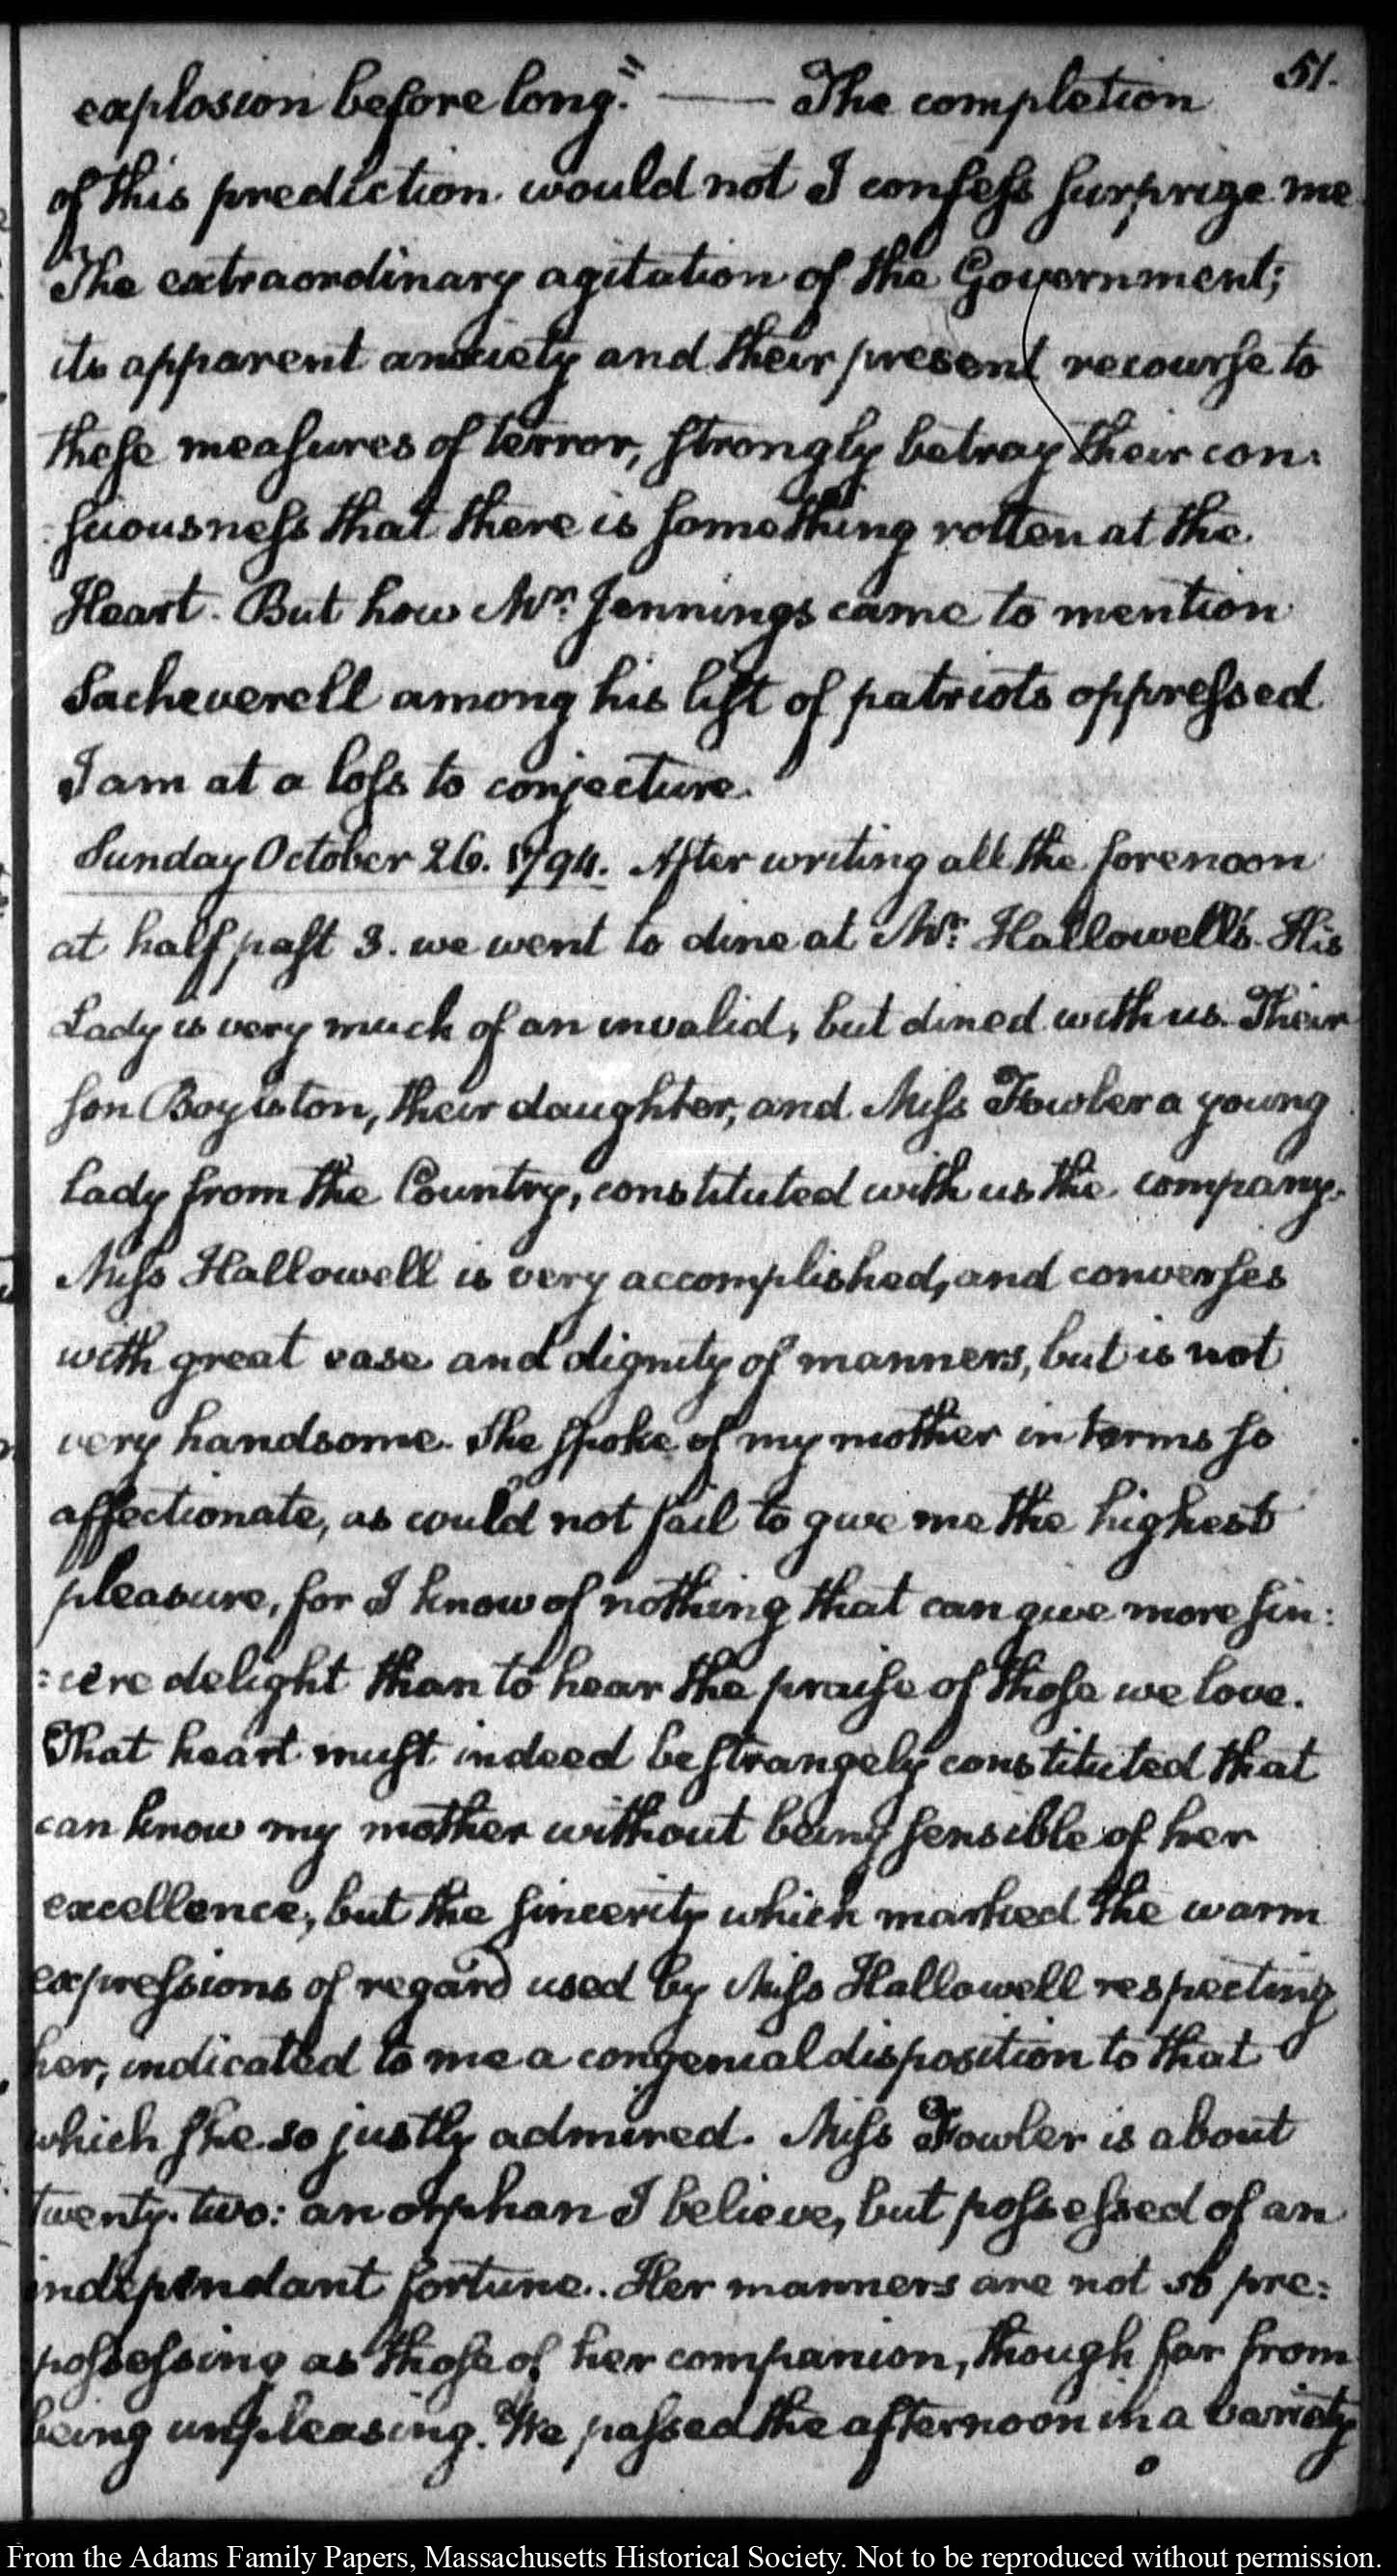 51.
explosion before long." —— The completion
of this prediction would not I confess surprize me
The extraordinary agitation of the Government;
its apparent anxiety and their present recourse to
these measures of terror, strongly betray their con:
:sciousness that there is something rotten at the
Heart. But how Mr. Jennings came to mention
Sacheverell among his list of patriots oppressed
I am at a loss to conjecture.
Sunday October 26. 1794. After writing all the forenoon
at half past 3. we went to dine at Mr. Hallowell's. His
Lady is very much of an invalid, but dined with us. Their
son Boylston, their daughter, and Miss Fowler a young
lady from the Country, constituted with us the company.
Miss Hallowell is very accomplished, and converses
with great ease and dignity of manners, but is not
very handsome. She spoke of my mother in terms so
affectionate, as could not fail to give me the highest
pleasure, for I know of nothing that can give more sin:
:cere delight than to hear the praise of those we love.
That heart must indeed be strangely constituted that
can know my mother without being sensible of her
excellence, but the sincerity which marked the warm
expressions of regard used by Miss Hallowell respecting
her, indicated to me a congenial disposition to that
which she so justly admired. Miss Fowler is about
twenty-two: an orphan I believe, but possessed of an
independant fortune. Her manners are not so pre:
possessing as those of her companion, though far from
being unpleasing. We passed the afternoon in a variety
From the Adams Family Papers, Massachusetts Historical Society. Not to be reproduced without permission.